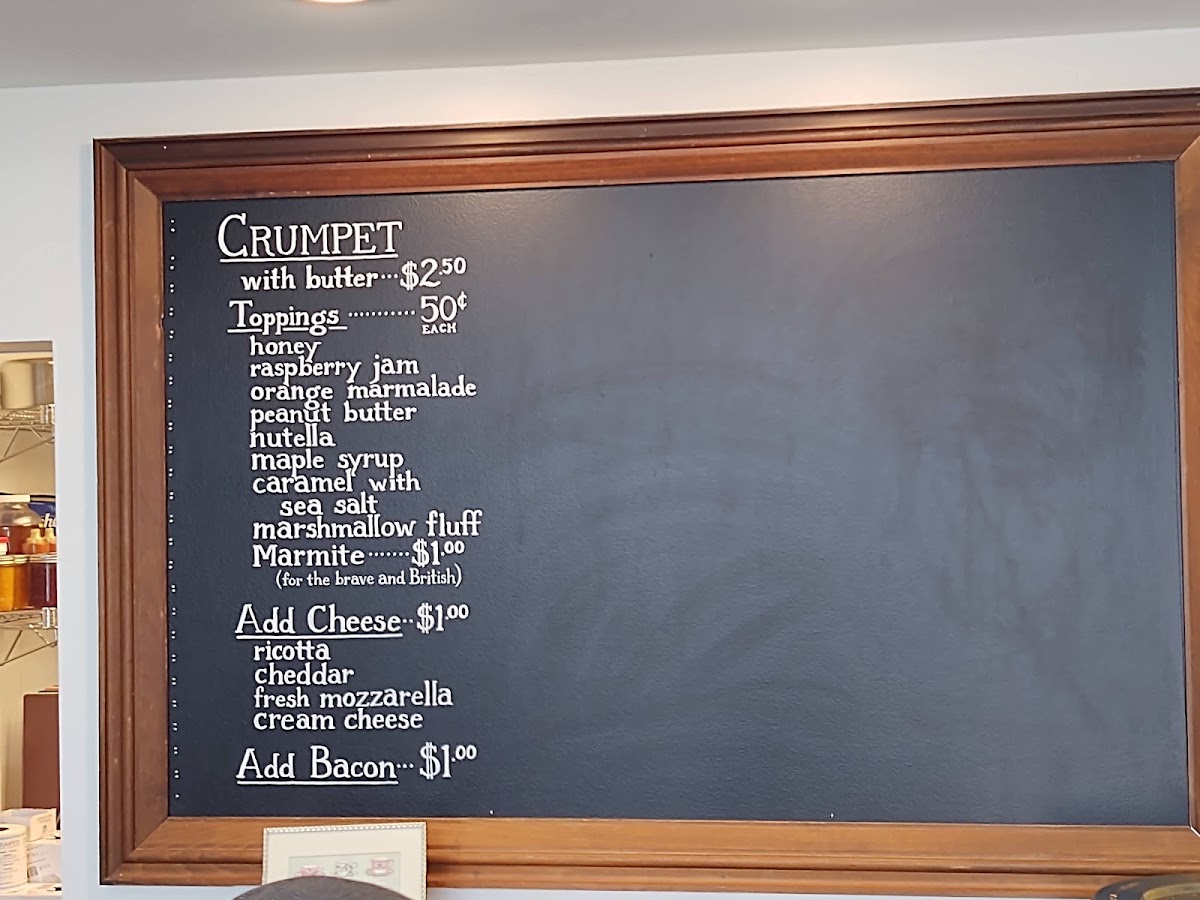 CRUMPET
with butter...$2.50
Toppings ........... 50¢
EACH
honey
raspberry jam
orange marmalade
peanut butter
nutella
maple syrup
caramel with
sea salt
marshmallow fluff
Marmite.......$1.00
(for the brave and British)
Add Cheese..$1.00
ricotta
cheddar
fresh mozzarella
cream cheese
Add Bacon...$1.00